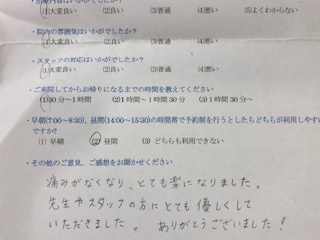 ・治療内容はいかがでしたか？
(1)大変良い (2)良い (3)普通 (4)悪い (5)よくわからない
・院内の雰囲気はいかがでしたか？
(1)大変良い (2)良い (3)普通 (4)悪い
・スタッフの対応はいかがでしたか？
(1)大変良い (2)良い (3)普通 (4)悪い
・ご来院してからお帰りになるまでの時間を教えてください
(1)30分～1時間 (2)1時間～1時間30分 (3)1時間30分～
・早朝(7:00～8:30)、昼間(14:00～15:30)の時間帯で予約制を行うとしたらどちらが利用しやすい
ですか？
(1) 早朝 (2) 昼間 (3) どちらも利用できない
・その他のご意見、ご感想をお聞かせください
痛みがなくなり、とても楽になりました。
先生やスタッフの方にとても優しくして
いただきました。 ありがとうございました！